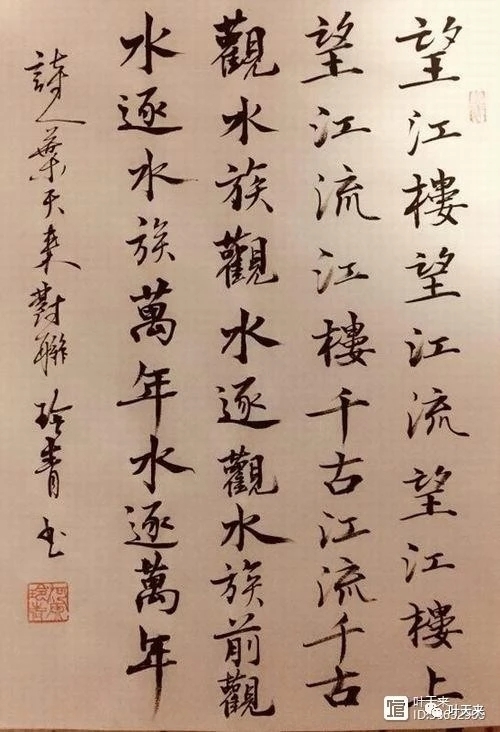 望江樓望江流望江樓上
望江流江樓千古江流千古
觀水族觀水逐觀水族前觀
水逐水族萬年水逐萬年
詩人葉天來對聯 玲青书
叶天来
叶天来